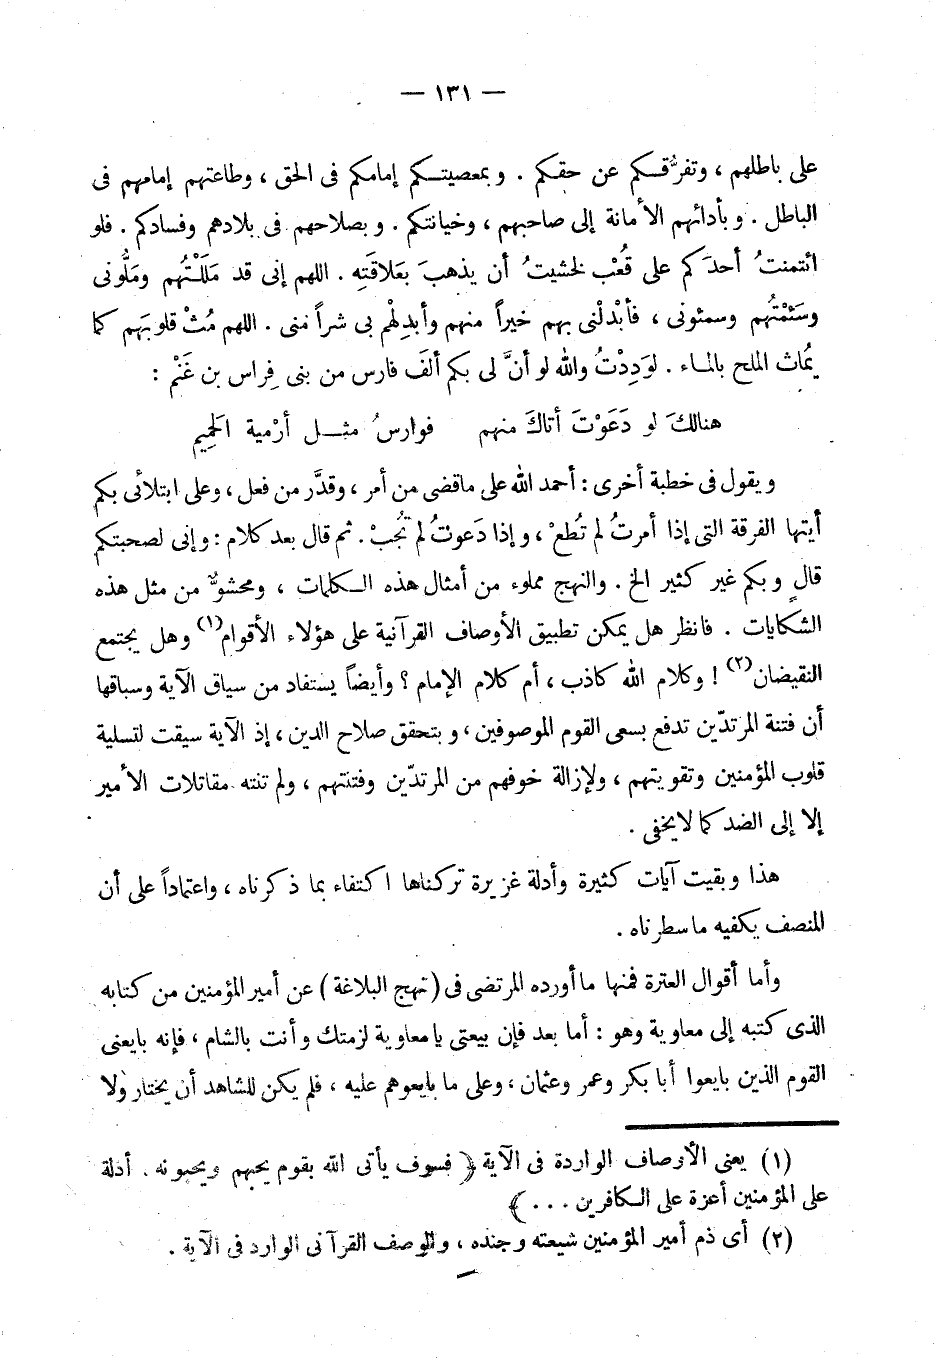 — ١٣١ —
على باطلهم ، وتفرُّقكم عن حقكم . وبمعصيتكم إمامكم فى الحق ، وطاعتهم إمامهم فى
الباطل . وبأدائهم الأمانة إلى صاحبهم ، وخيانتكم . وبصلاحهم فى بلادهم وفسادكم . فلو
ائتمنتُ أحدَكم على قُعْب لخشيتُ أن يذهبَ بعَلاقَتِه . اللهم إنى قد مَلَلْتُهم ومَلُّونى
وسَئمْتُهم وسمئونى ، فأبْدلْنى بهم خيراً منهم وأبدِلْهم بى شراً منى . اللهم مُثْ قلوبَهم كما
يُماث الملح بالماء . لوَدِدْتُ والله لو أنَّ لى بكم ألفَ فارس من بنى فِراس بن غَنْم :
هنالكَ لو دَعَوْتَ أتاكَ منهم فوارسُ مثل أرْمية الحَمِيم
ويقول فى خطبة أخرى : أحمد الله على ماقضى من أمر ، وقدَّر من فعل ، وعلى ابتلائى بكم
أيتها الفرقة التى إذا أمرتُ لم تُطعْ ، وإذا دَعوتُ لم تُجبْ . ثم قال بعد كلام : وإنى لصحبتكم
قالٍ وبكم غير كثير الخ . والنهج مملوء من أمثال هذه الكلمات ، ومحشوٌّ من مثل هذه
الشكايات . فانظر هل يمكن تطبيق الأوصاف القرآنية على هؤلاء الأقوام(١) وهل يجتمع
النقيضان(٢) ! وكلام الله كاذب ، أم كلام الإمام ؟ وأيضاً يستفاد من سياق الآية وسباقها
أن فتنة المرتدّين تدفع بسعى القوم الموصوفين ، وبتحقق صلاح الدين ، إذ الآية سيقت لتسلية
قلوب المؤمنين وتقويتهم ، ولإزالة خوفهم من المرتدّين وفتنتهم ، ولم تنته مقاتلات الأمير
إلا إلى الضد كما لايخفى .
هذا وبقيت آيات كثيرة وأدلة غزيرة تركناها اكتفاء بما ذكرناه ، واعتماداً على أن
المنصف يكفيه ما سطرناه .
وأما أقوال العترة فمنها ما أورده المرتضى فى (نهج البلاغة) عن أمير المؤمنين من كتابه
الذى كتبه إلى معاوية وهو : أما بعد فإن بيعتى يا معاوية لزمتك وأنت بالشام ، فإنه بايعنى
القوم الذين بايعوا أبا بكر وعمر وعثمان ، وعلى ما بايعوهم عليه ، فلم يكن للشاهد أن يختار ولا
(١) يعنى الأرصاف الواردة فى الآية ﴿ فسوف يأتى الله بقوم يحبهم ويحبونه . أدلة
على المؤمنين أعزة على الكافرين ... ﴾
(٢) أى ذم أمير المؤمنين شيعته وجنده ، والوصف القرآنى الوارد فى الآية .